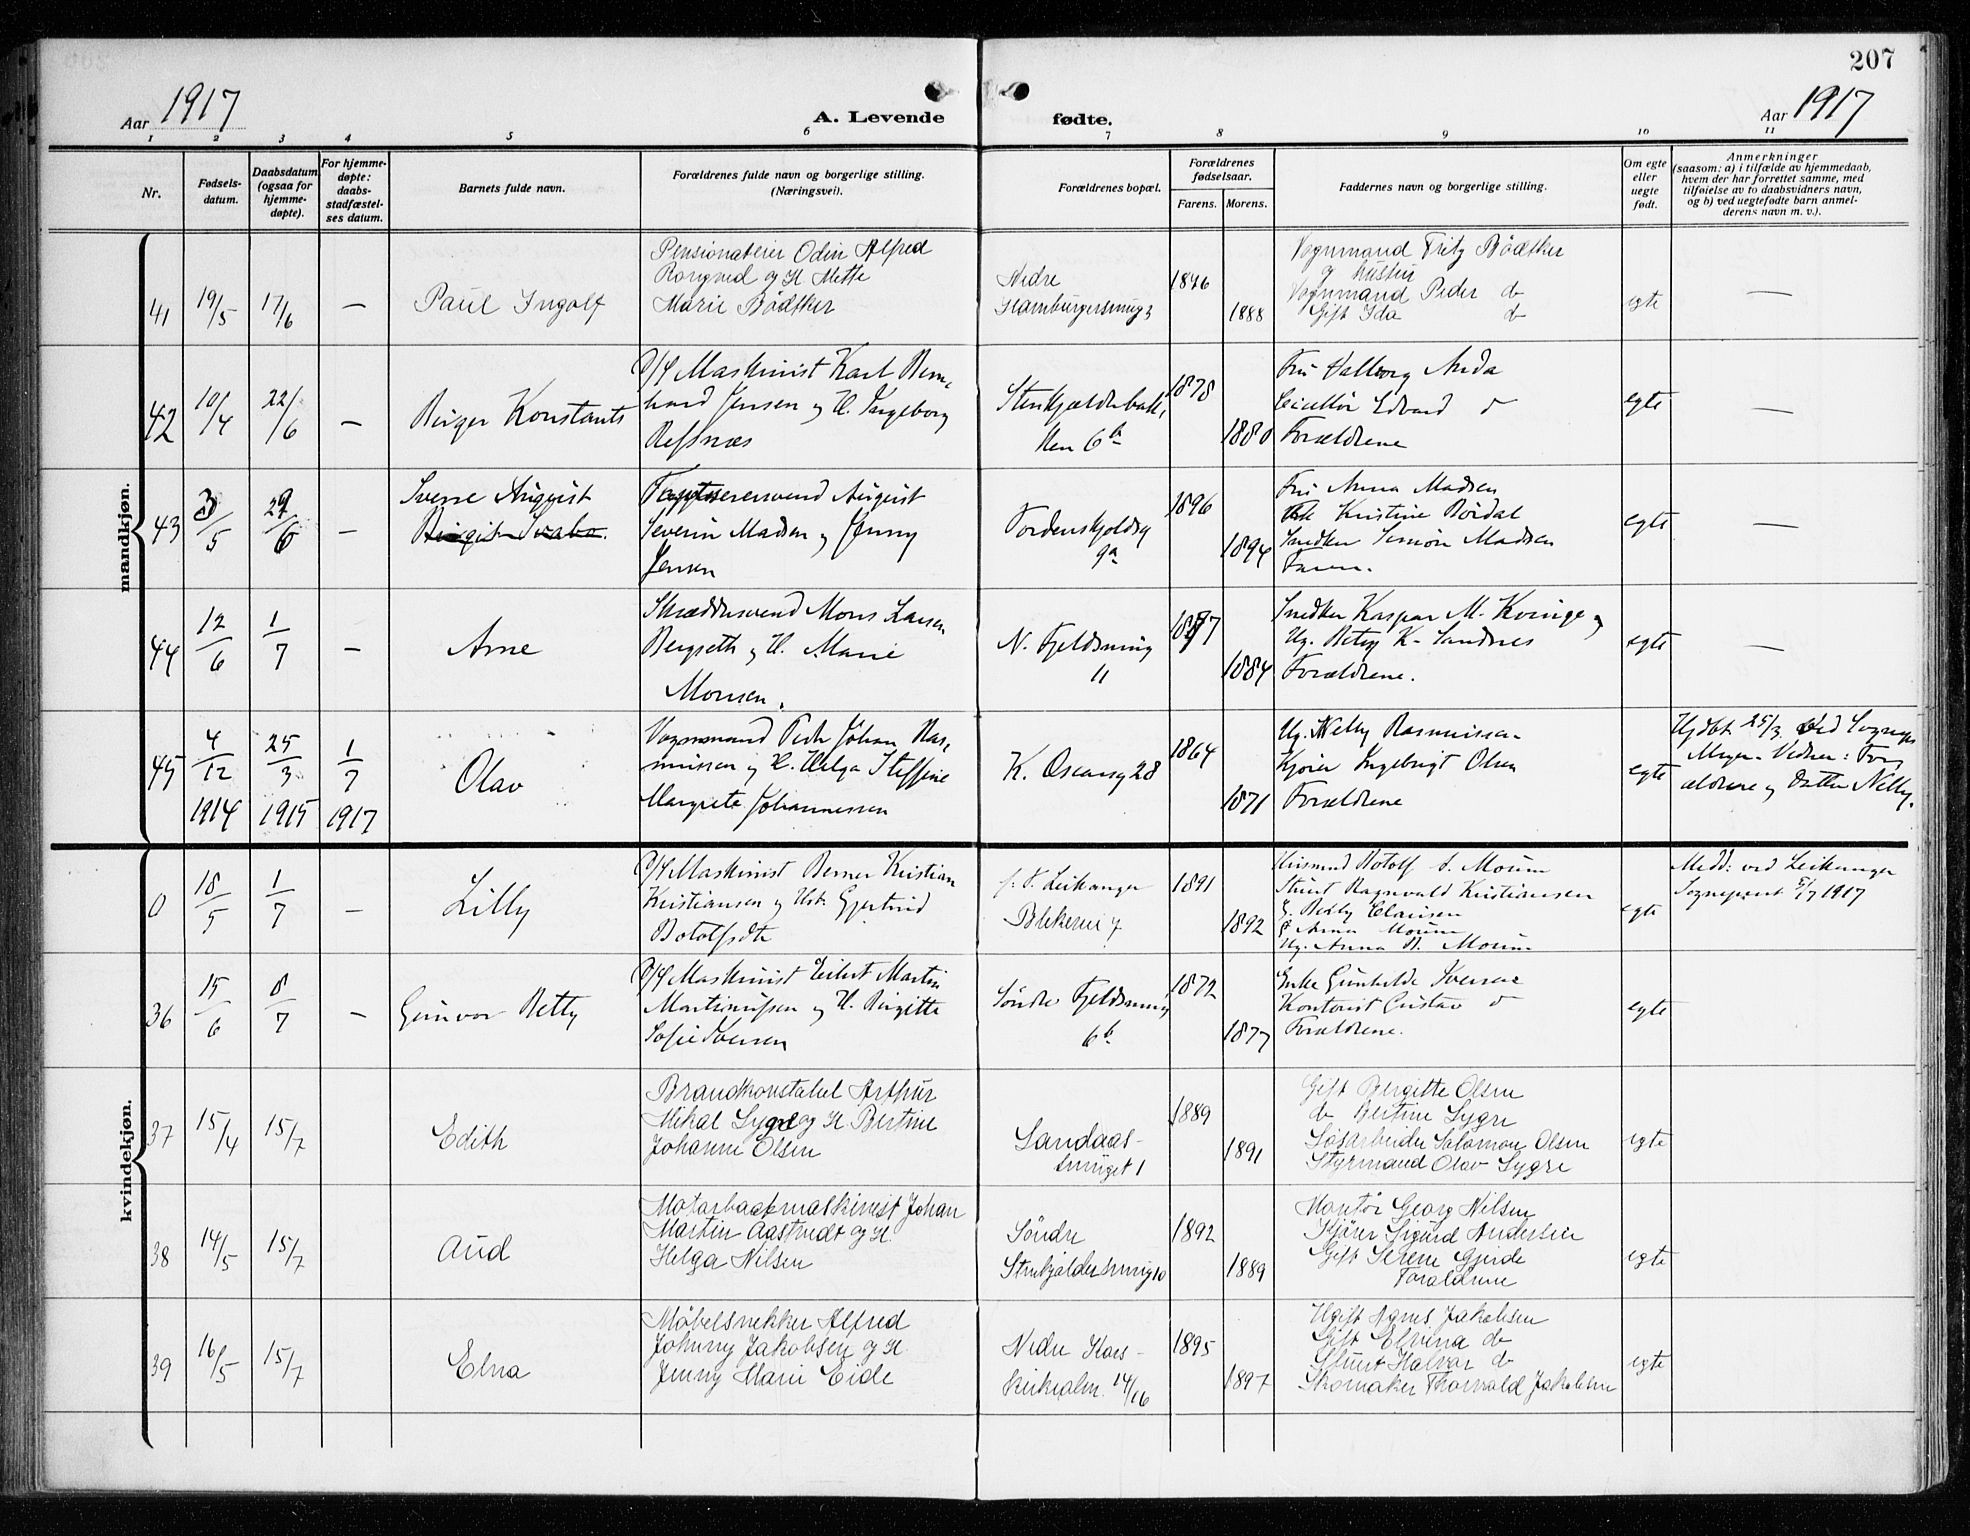 207
Aar 1917
A. Levende fødte.
Aar 1917
1 2 3 4 5 6 7 8 9 10 11
Nr.
Fødsels-
datum.
Daabsdatum
(ogsaa for
hjemme-
døpte).
For hjemme-
døpte:
daabs-
stadfæstel-
ses datum.
Barnets fulde navn.
Forældrenes fulde navn og borgerlige stilling.
(Næringsvei).
Forældrenes bopæl.
Forældrenes
fødselsaar.
Farens. Morens.
Faddernes navn og borgerlige stilling.
Om egte
eller
uegte
født.
Anmerkninger
(saasom: a) i tilfælde av hjemmedaab,
hvem der har forrettet samme, med
tilføielse av to daabsvidners navn,
og b) ved uegtefødte barn anmel-
derens navn m. v.).
mandkjøn.
41
19/5
17/6
—
Paul Ingolf
Pensionateier Odin Alfred
Rongved og H Mette
Marie Bödtker
Nedre
Hamburgersmug 3
1876
1888
Vognmand Fritz Bödtker
og hustru
Vognmand Peder do
Gift Ida do
egte
—
42
10/4
22/6
—
Birger Konstants
D/S Maskinist Karl Bern,
hard Jensen og H. Ingeborg
Refsnæs
Stenkjelderbak,
ken 6 b
1878
1880
Fru Valborg Anda
Edvard do
Forældrene
egte
—
43
3/5
29/6
—
Sverre August
Madsen og Jenny
Jensen
Severin
August
Tordenskjoldsg
9a
1896
1894
Fru Anna Madsen
Kristine
Snedker Simon Madsen
Faren.
egte
—
44
12/6
1/7
—
Arne
Skræddersvend Mons Larsen
Bergseth og H. Marie
Monsen.
N. Fjeldsmug
11
1877
1884
Snedker Kaspar M. Kvinge og
Ug. Betsy K. Sandnes
Forældrene.
egte
—
45
4/12
1914
25/3
1915
1/7
1917
Olav
Vognmand Peder Johan Ras,
mussen og H. Helga Steffine
Margrete Johannessen
K. Oscarsg 28
1864
1871
Ug. Nelly Rasmussen
Kjører Ingebrigt Olsen
Forældrene
egte
Hjdbt. 25/3 ved Sognepr
Meyer. Vidner: For,
ældrene og Datter Nelly.
kvindekjøn.
0
18/5
1/7
—
Lilly
D/S Maskinist Berner Kristian
Kristiansen og Hst. Gjertrud
Botolfsdtr
f. t. Leikanger
Blekevei 7
1891
1892
Husmand Botolf S. Monum
Stuert Ragnvald Kristiansen
G. Betsy Clausen
G Anna
Ug. Anna B.
egte
Medd: ved Leikanger
Sogneprest 5/7 1917
36
15/6
8/7
—
Gunvor Betty
D/S Maskinist Eilert Martin
Martinussen og H. Birgitte
Sofie Iversen
Söndre Fjeldsmug
6 b.
1872
1877
Enke Gunhilde Iversen
Kontorist Gustav do
Forældrene.
egte
37
15/4
15/7
Edith
Brandkonstabel Arthur
Mikal Sygre og H Bertine
Johanne Olsen
Sandaas-
smuget 1
1889
1891
Gift Bergitte Olsen
do Bertine Sygre
Løsarbeider Salomon Olsen
Styrmand Olav Sygre
egte
38
14/5
15/7
Aud
Motorbaatmaskinist Johan
Martin Aastvedt og H.
Helga Nilsen
Söndre
Stenkjeldersmug 10
1892
1889
Montör Georg Nilsen
Kjører Sigurd Andersen
Gift Serene Gjerde
Forældrene
egte
39
16/5
15/7
Elna
Møbelsnekker Alfred
Johnny Jakobsen og H.
Jenny Marie Eide
Nedre Kors-
kirkealm. 14/16
1895
1897
Ugift Agnes Jakobsen
Gift Elvina do
Stuert Halvor do
Skomaker Thorvald Jakobsen
egte